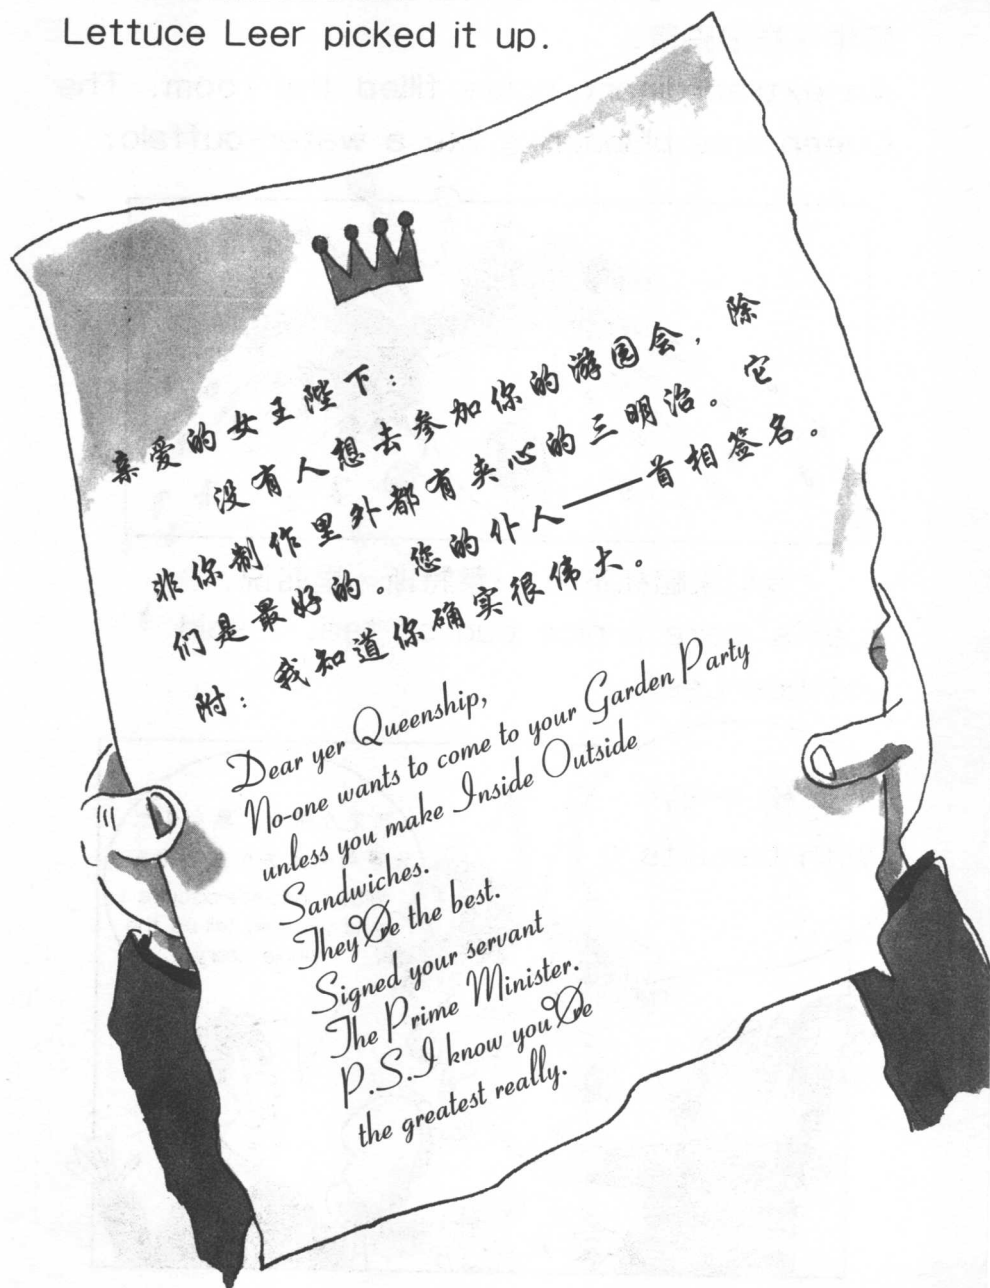 Lettuce Leer picked it up.
亲爱的女王陛下:
没有人想去参加你的游园会,除
非你制作里外都有夹心的三明治。它
们是最好的。您的仆人——首相签名。
附:我知道你确实很伟大。
Dear yer Queenship,
No-one wants to come to your Garden Party
unless you make Inside Outside
Sandwiches.
They°Øre the best.
Signed your servant
The Prime Minister.
P.S.I know you°Øre
the greatest really.